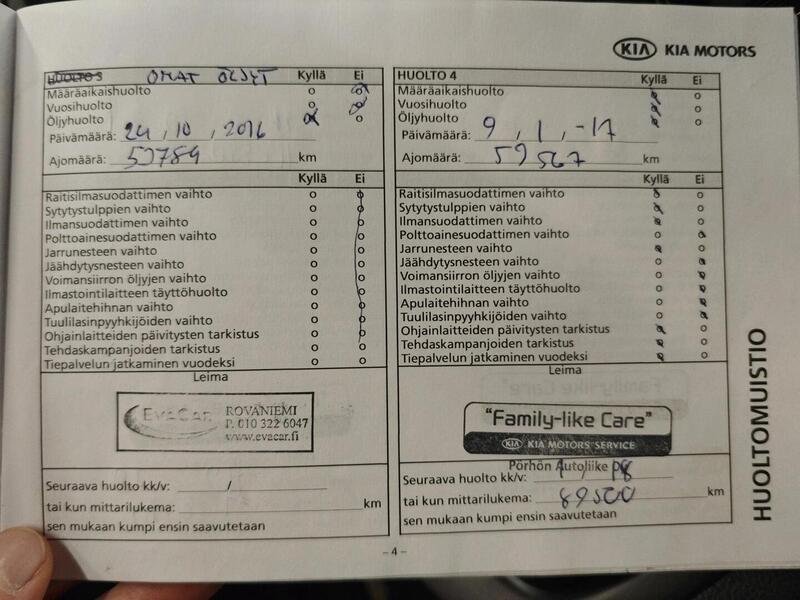 KIA KIA MOTORS
HUOLTO 3 OMAT ÖLJYT Kyllä Ei
Määräaikaishuolto
Vuosihuolto
Öljyhuolto
Päivämäärä: 24 , 10 , 2016
Ajomäärä: km
Kyllä Ei
Raitisilmasuodattimen vaihto
Sytytystulppien vaihto
Ilmansuodattimen vaihto
Polttoainesuodattimen vaihto
Jarrunesteen vaihto
Jäähdytysnesteen vaihto
Voimansiirron öljyjen vaihto
Ilmastointilaitteen täyttöhuolto
Apulaitehihnan vaihto
Tuulilasinpyyhkijöiden vaihto
Ohjainlaitteiden päivitysten tarkistus
Tehdaskampanjoiden tarkistus
Tiepalvelun jatkaminen vuodeksi
Leima
EVACAR ROVANIEMI
P. 010 322 6047
www.evacar.fi
Seuraava huolto kk/v: /
tai kun mittarilukema: km
sen mukaan kumpi ensin saavutetaan
HUOLTO 4 Kyllä Ei
Määräaikaishuolto
Vuosihuolto
Öljyhuolto
Päivämäärä: 9 , 1 , -17
Ajomäärä: 59567 km
Kyllä Ei
Raitisilmasuodattimen vaihto
Sytytystulppien vaihto
Ilmansuodattimen vaihto
Polttoainesuodattimen vaihto
Jarrunesteen vaihto
Jäähdytysnesteen vaihto
Voimansiirron öljyjen vaihto
Ilmastointilaitteen täyttöhuolto
Apulaitehihnan vaihto
Tuulilasinpyyhkijöiden vaihto
Ohjainlaitteiden päivitysten tarkistus
Tehdaskampanjoiden tarkistus
Tiepalvelun jatkaminen vuodeksi
Leima
"Family-like Care"
KIA KIA MOTORS SERVICE
Pörhön Autoliike
Seuraava huolto kk/v:
tai kun mittarilukema: 89500 km
sen mukaan kumpi ensin saavutetaan
HUOLTOMUISTIO
- 4 -